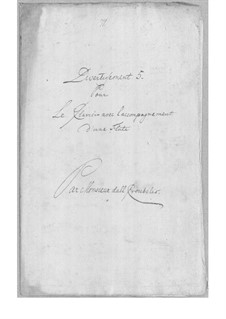 Divertissement 5.
Pour
Le Clavecin avec l'accompagnement
d'une Flute
Par Monsieur dall